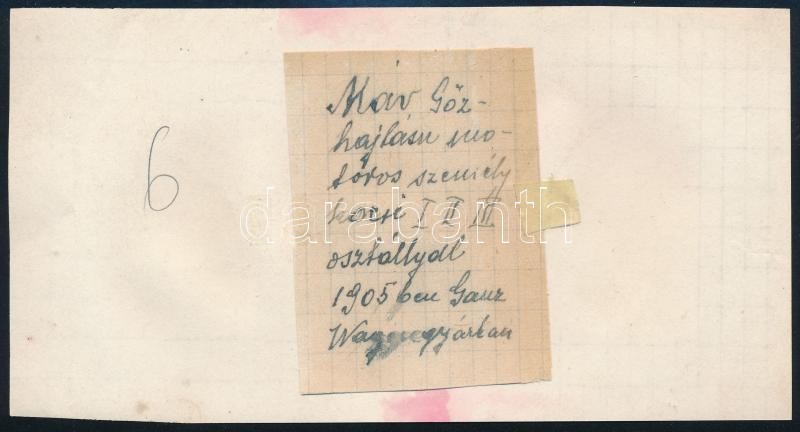 Máv Gőz-
hajtásu mo-
töros személy
kocsi I II III
osztállyal
1905 ben Ganz
Waggongyárban
6
darabanth